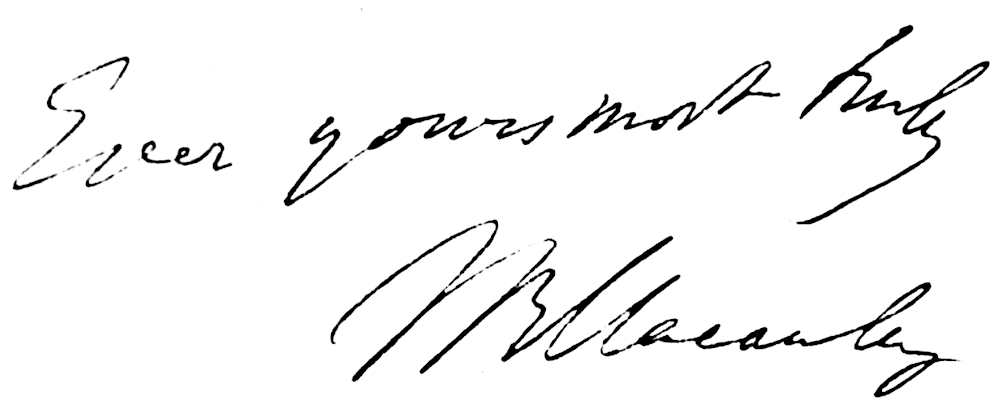 Ever yours most truly
T B Macaulay